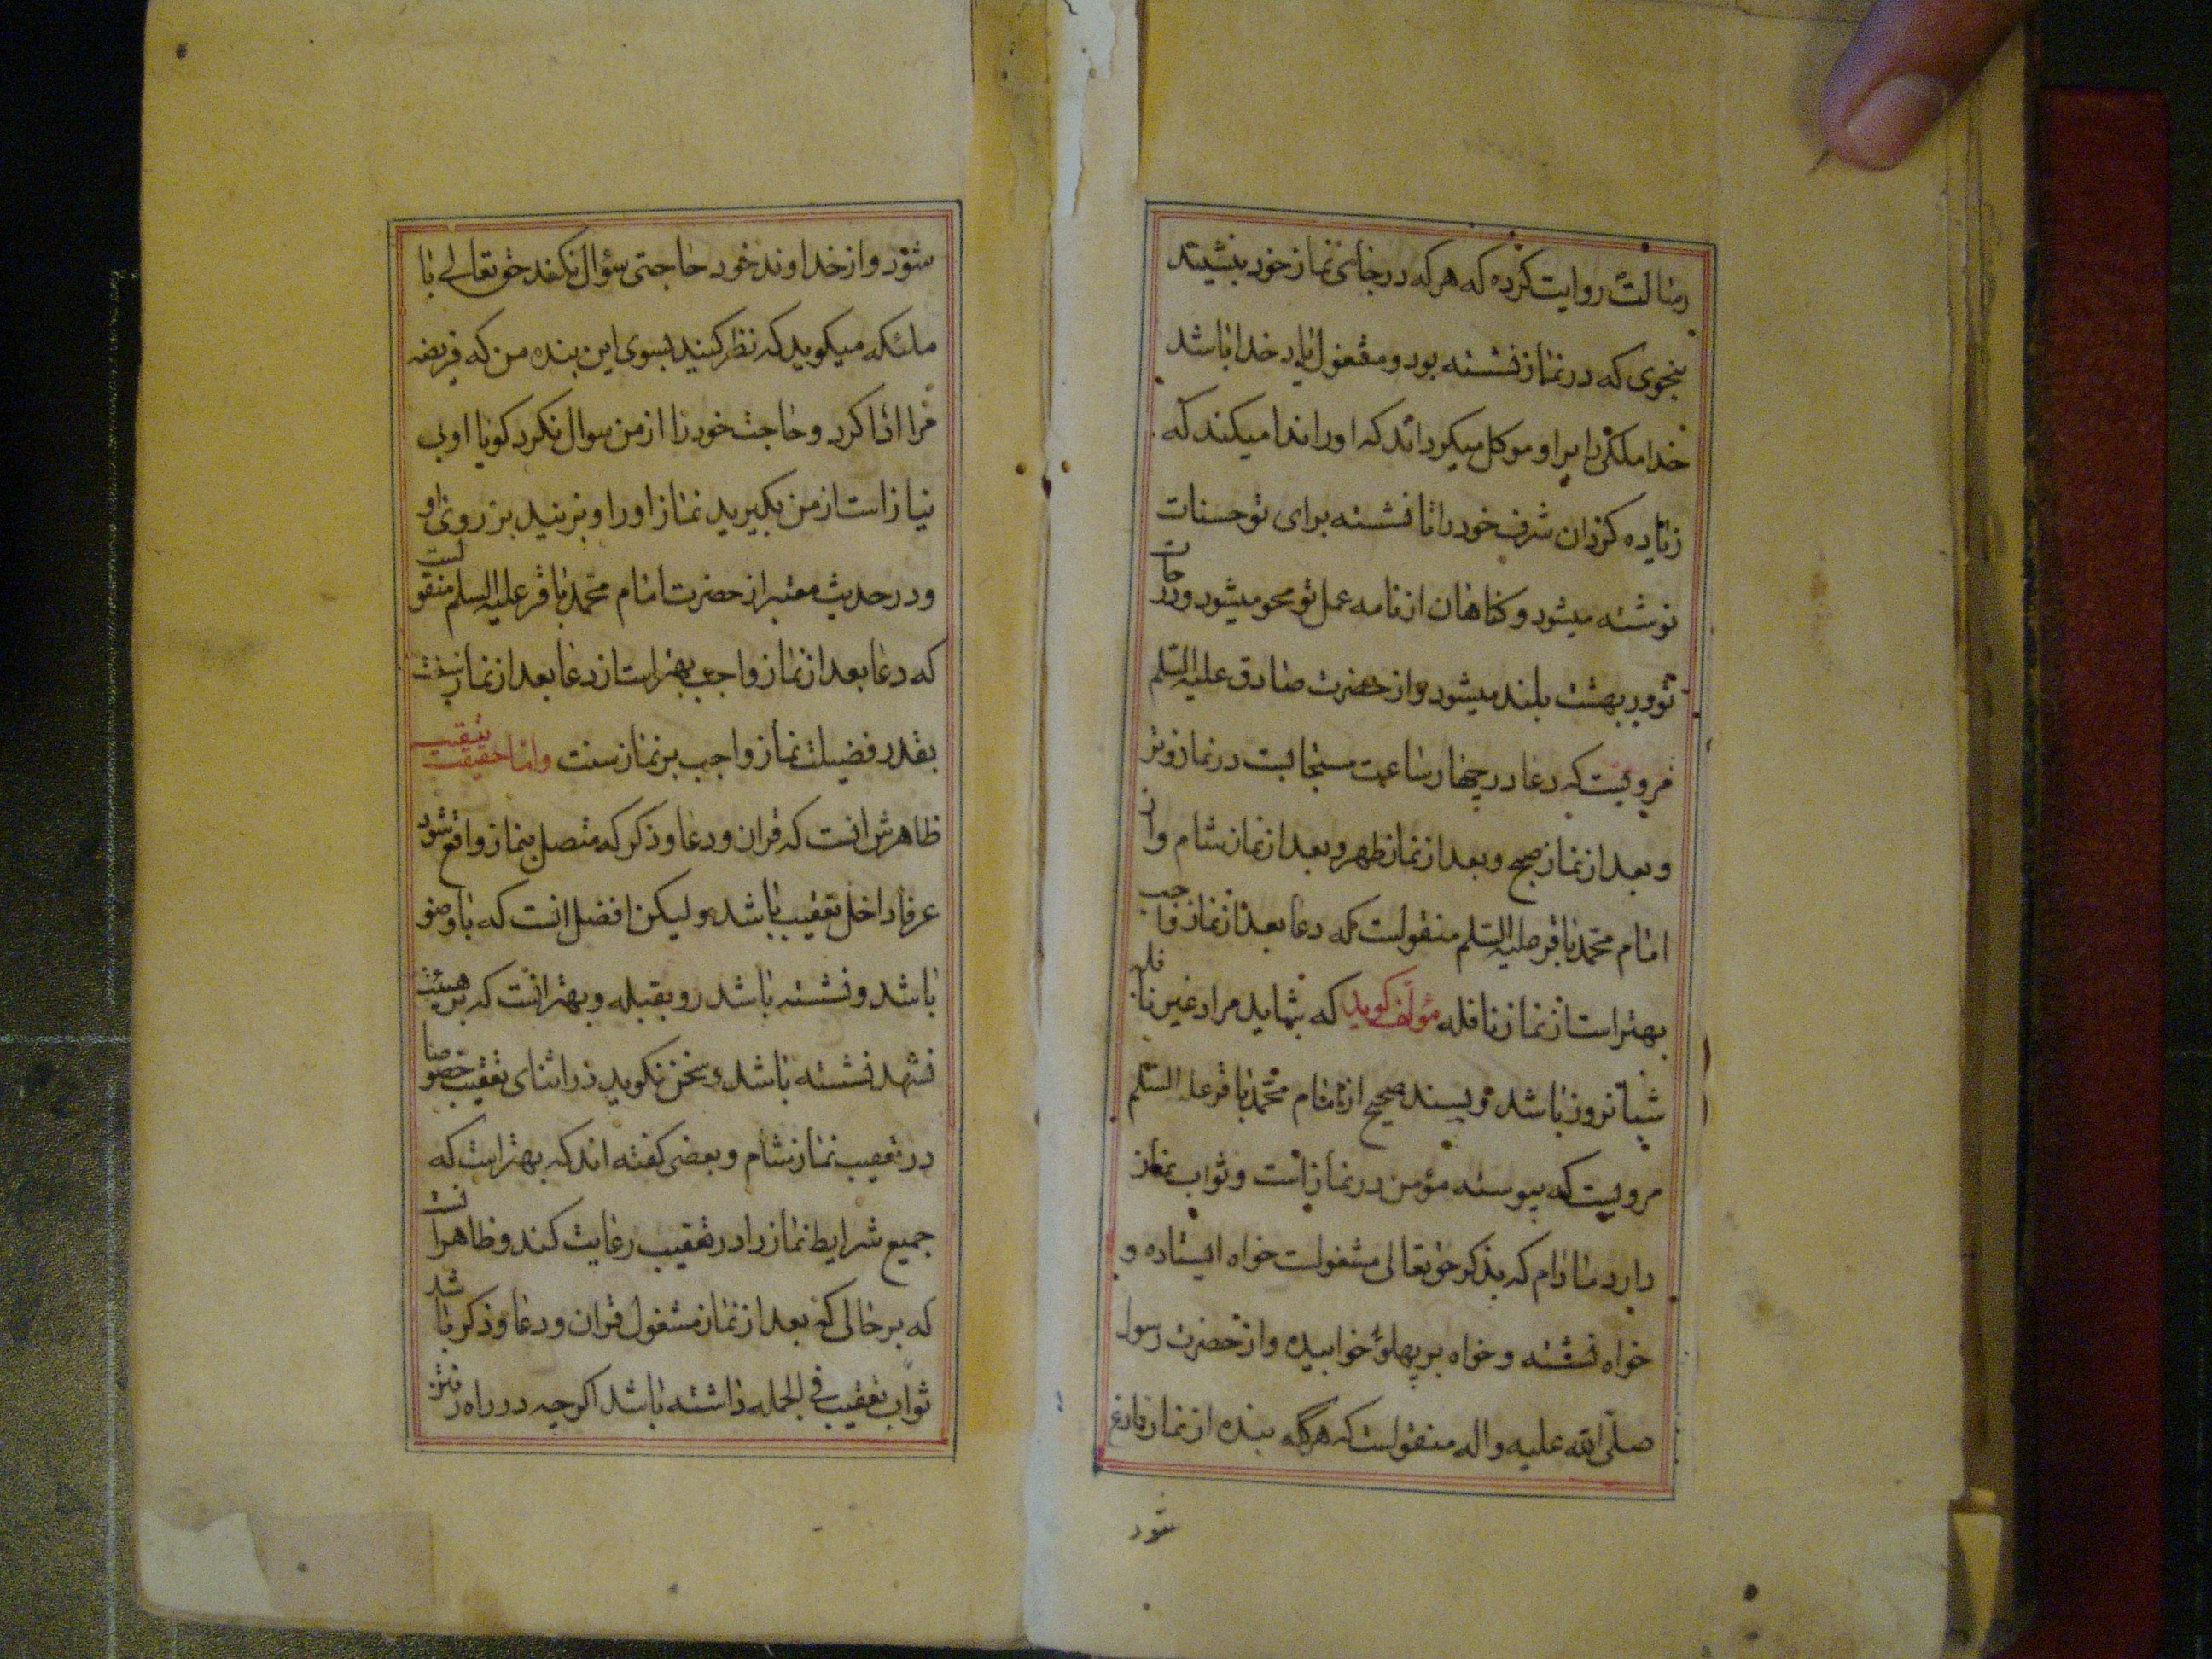 رسالت روایت کرده که هر که در جای نماز خود بنشیند
بنحوی که در نماز نشسته بود و مشغول یاد خدا باشد
خدا ملکی را بر او موکل میکرداند که او را ندا میکند که
زیاده کردان شرف خود را تا نشسته برای تو حسنات
نوشته میشود و کناهان از نامه عمل تو محو میشود و درجات
تو در بهشت بلند میشود و از حضرت صادق علیه السلم
مرویست که دعا در چهار ساعت مستجابست در نماز وتر
و بعد از نماز صبح و بعد از نماز ظهر و بعد از نماز شام و از
امام محمد باقر علیه السلم منقولست که دعا بعد از نماز واجب
بهتر است از نماز نافله مؤلف کوید که شاید مراد غیر نافله
شبانروز باشد و بسند صحیح از امام محمد باقر علیه السلم
مرویست که پیوسته مؤمن در نماز است و ثواب نماز
دارد مادام که بذکر حق تعالی مشغولست خواه ایستاده و
خواه نشسته و خواه بر پهلو خوابیده و از حضرت رسول
صلی الله علیه و اله منقولست که هرکه بنده از نماز فارغ
شود
شود و از خداوند خود حاجتی سؤال نکند حق تعالی با
ملئکه میکوید که نظر کنید بسوی این بنده من که فریضه
مرا ادا کرد و حاجت خود را از من سوال نکرد کویا او بی
نیاز است از من بکیرید نماز او را و بزنید بر روی او
و در حدیث معتبر از حضرت امام محمد باقر علیه السلم منقولست
که دعا بعد از نماز واجب بهتر است از دعا بعد از نماز سنت
بقدر فضیلت نماز واجب بر نماز سنت و اما حقیقت تعقیب
ظاهرش انست که قران و دعا و ذکر که متصل بنماز واقع شود
عرفا داخل تعقیب باشد و لیکن افضل انست که با وضو
باشد و نشسته باشد رو بقبله و بهتر انست که بر هیئت
تشهد نشسته باشد و سخن نکوید در اثنای تعقیب خصوصا
در تعقیب نماز شام و بعضی کفته اند که بهتر است که
جمیع شرایط نماز را در تعقیب رعایت کند و ظاهرا انست
که بر حالی که بعد از نماز مشغول قران و دعا و ذکر باشد
ثواب تعقیب فی الجمله داشته باشد اکرچه در راه رفتن